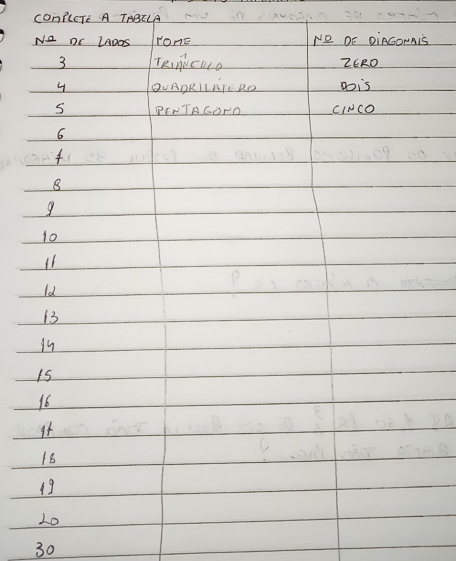 COMPLETE A TABELA
Nº DE LADOS NOME Nº DE DIAGONAIS
3 TRIÂNGULO ZERO
4 QUADRILÁTERO DOIS
5 PENTÁGONO CINCO
6
7
8
9
10
11
12
13
14
15
16
17
18
19
20
30